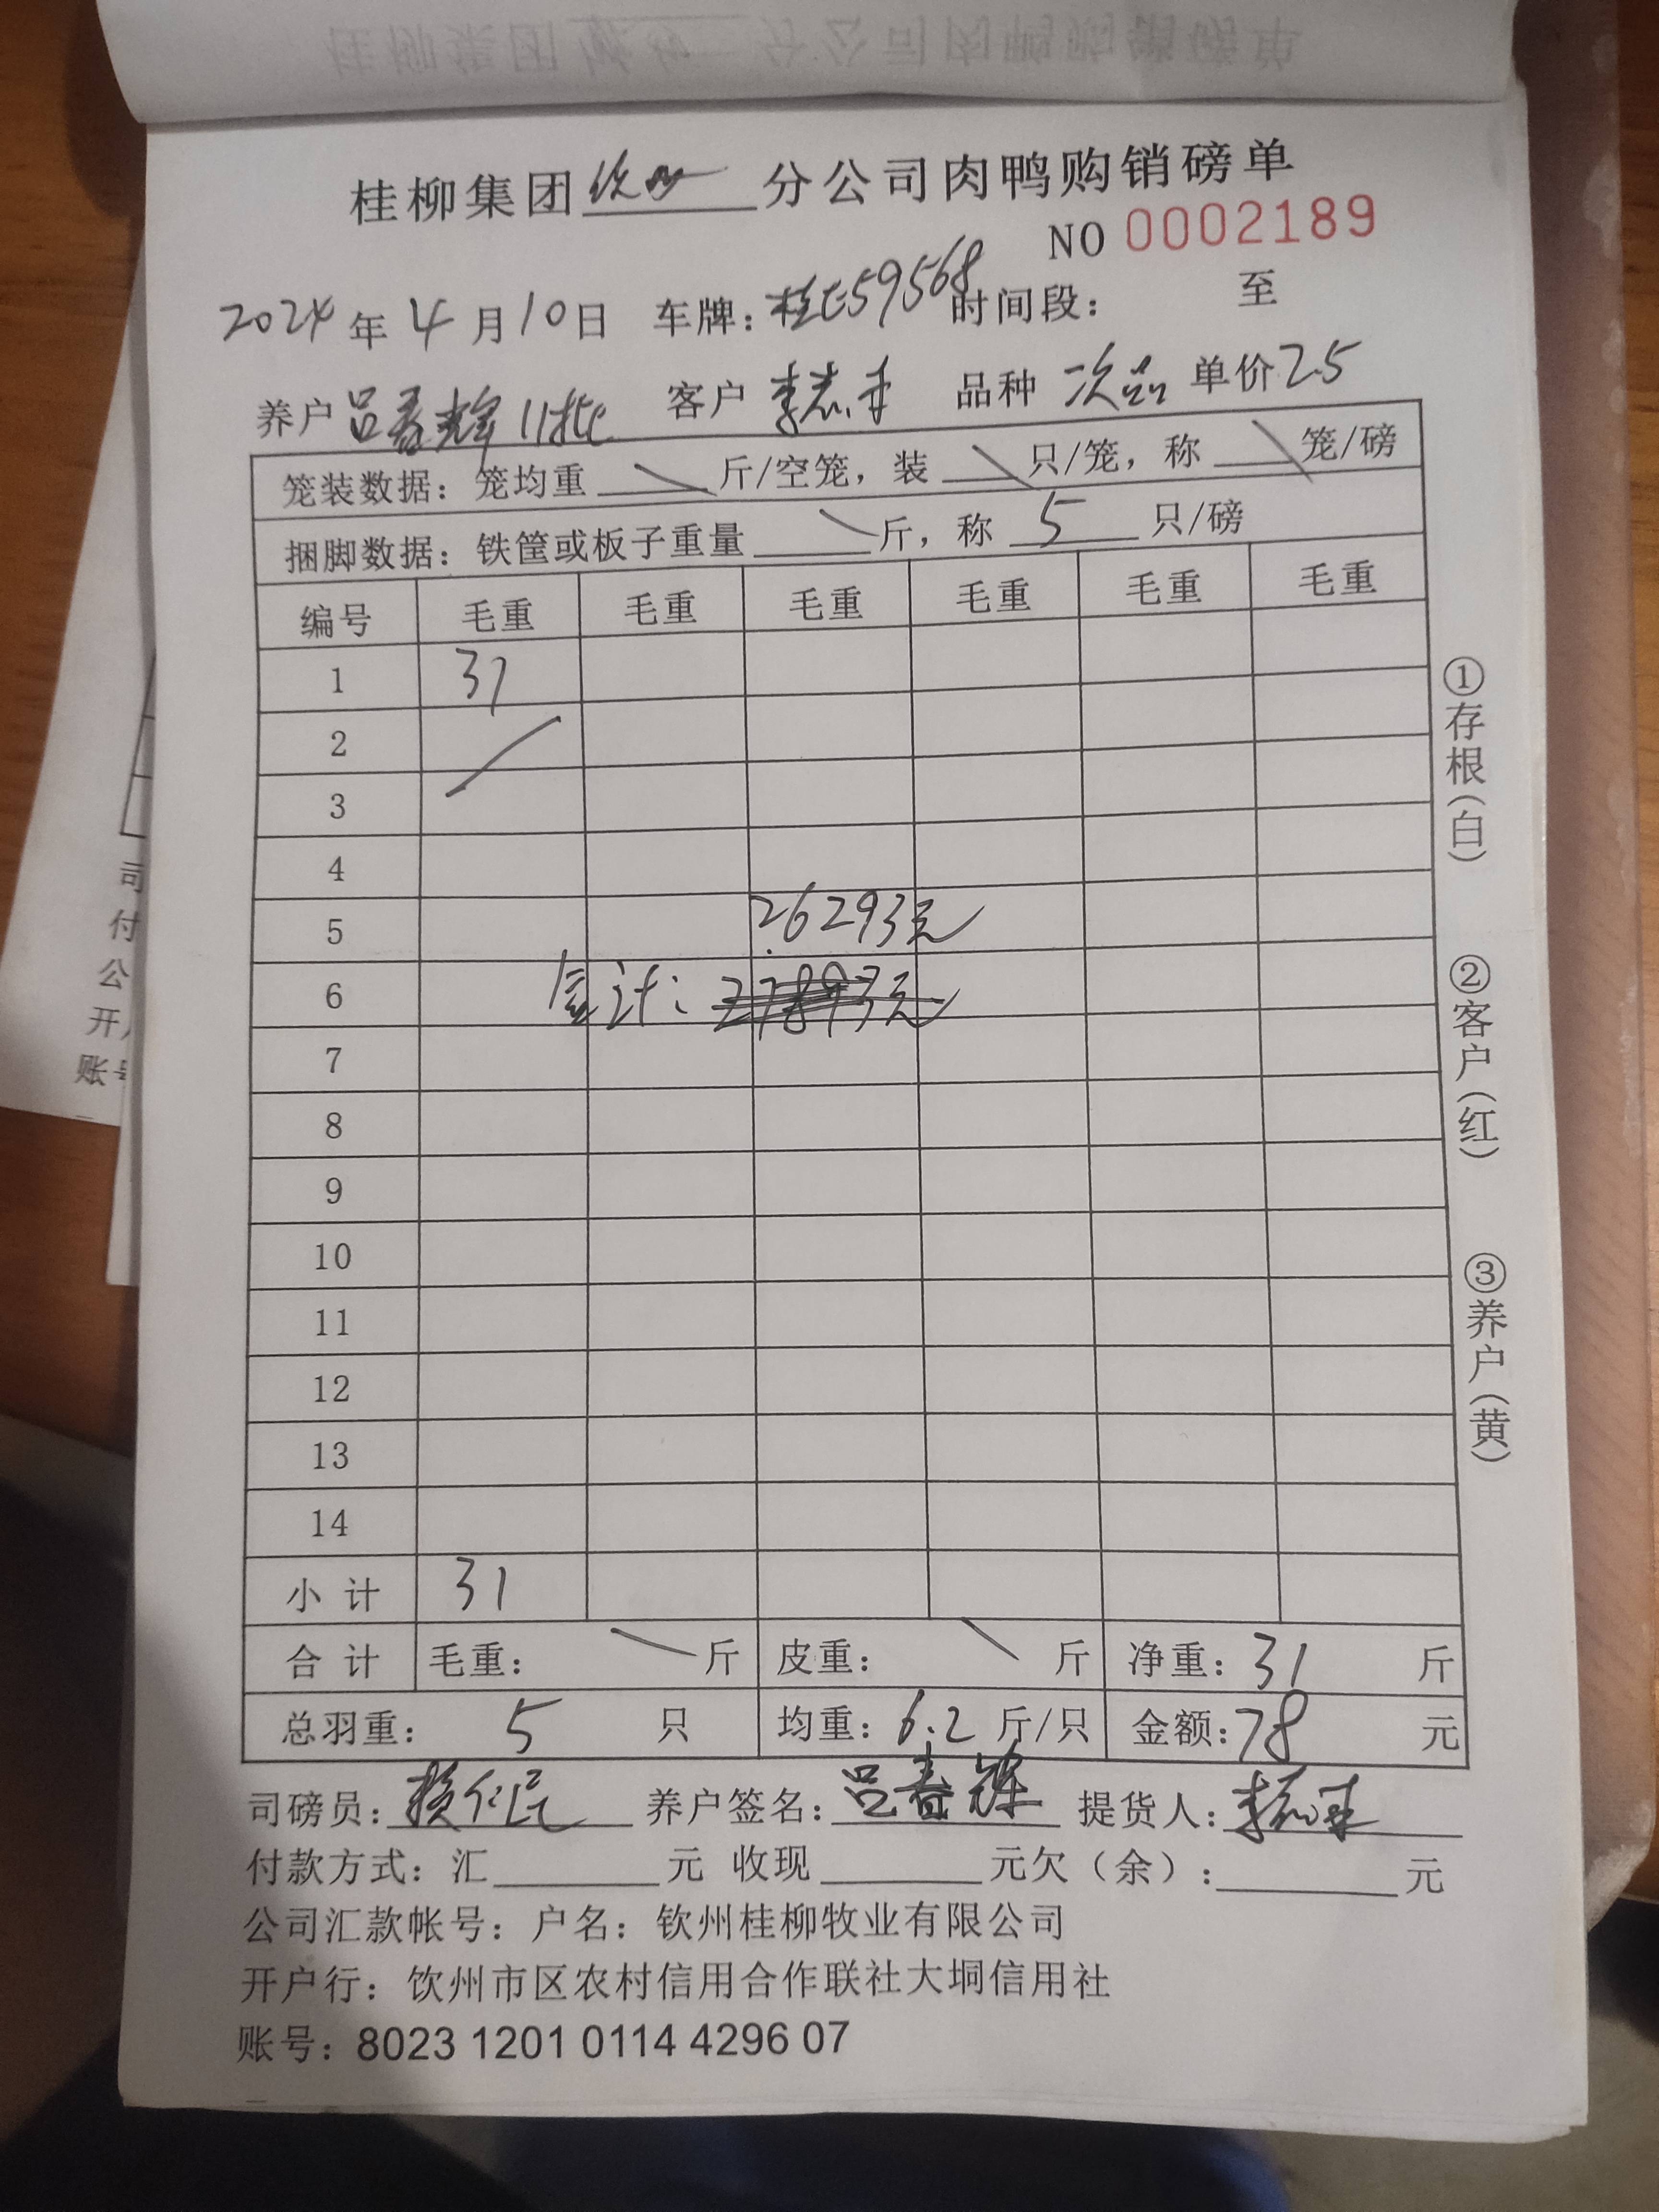 桂柳集团钦州分公司肉鸭购销磅单
NO 0002189
2024年4月10日 车牌:桂E59568时间段: 至
养户吕春辉11批 客户李志 品种次品单价2.5
笼装数据:笼均重 斤/空笼,装 只/笼,称 笼/磅
捆脚数据:铁筐或板子重量 斤,称 5 只/磅
编号 毛重 毛重 毛重 毛重 毛重 毛重
1 31
2
3
4
5 26293元
6 合计:27893元
7
8
9
10
11
12
13
14
小计 31
合计 毛重: 斤 皮重: 斤 净重:31 斤
总羽重: 5 只 均重:6.2斤/只 金额:78 元
司磅员: 养户签名:吕春辉 提货人:李
付款方式:汇 元 收现 元欠(余): 元
公司汇款帐号:户名:钦州桂柳牧业有限公司
开户行:钦州市区农村信用合作联社大垌信用社
账号:8023 1201 0114 4296 07
①存根(白)
②客户(红)
③养户(黄)
司
付
公
开
账号